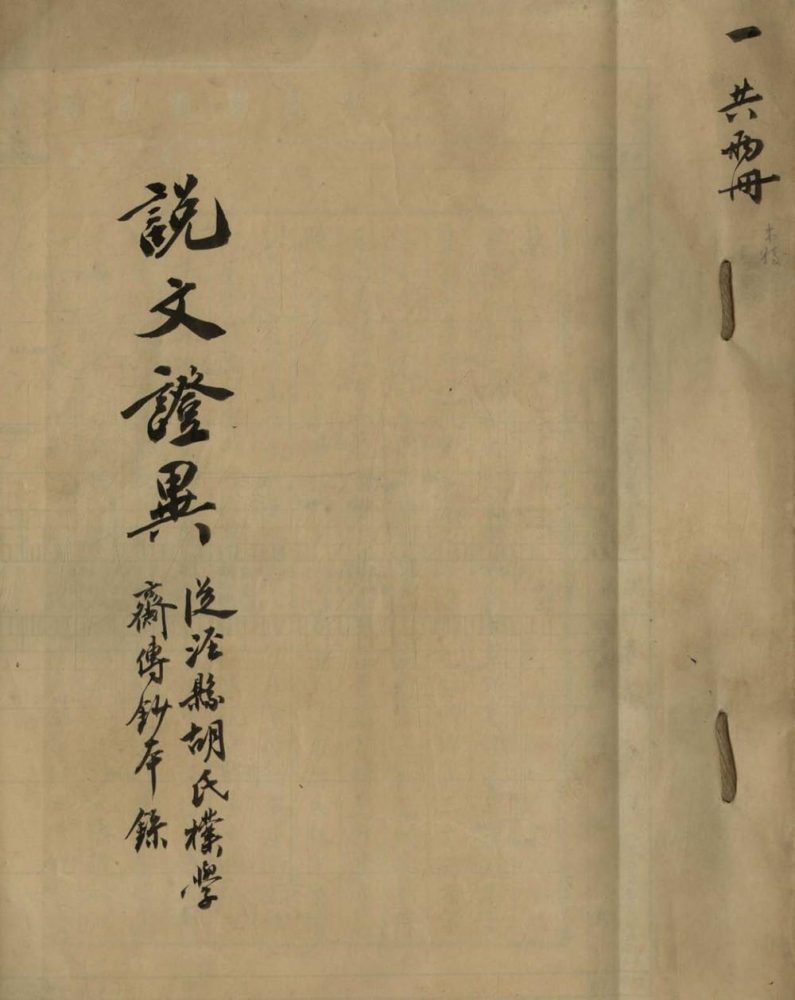 一 共兩冊
說文證異
從涇縣胡氏樸學
齋傳鈔本錄